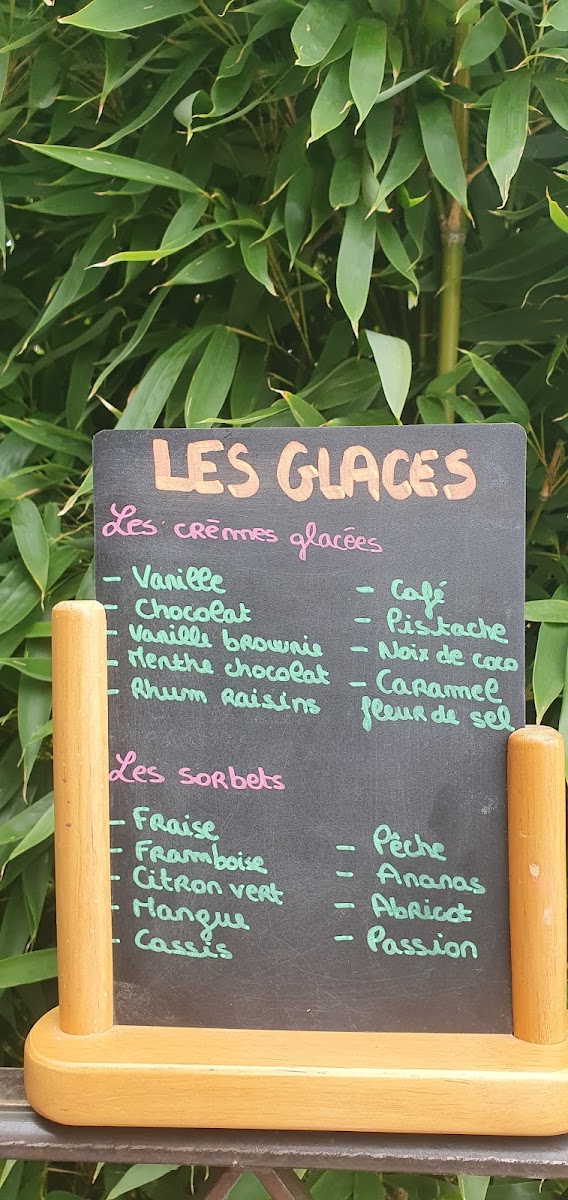 LES GLACES
Les crèmes glacées
- Vanille
- Chocolat
- Vanille brownie
- Menthe chocolat
- Rhum Raisins
- Café
- Pistache
- Noix de coco
- Caramel
fleur de sel
Les sorbets
- Fraise
- Framboise
- Citron vert
- Mangue
- Cassis
- Pêche
- Ananas
- Abricot
- Passion